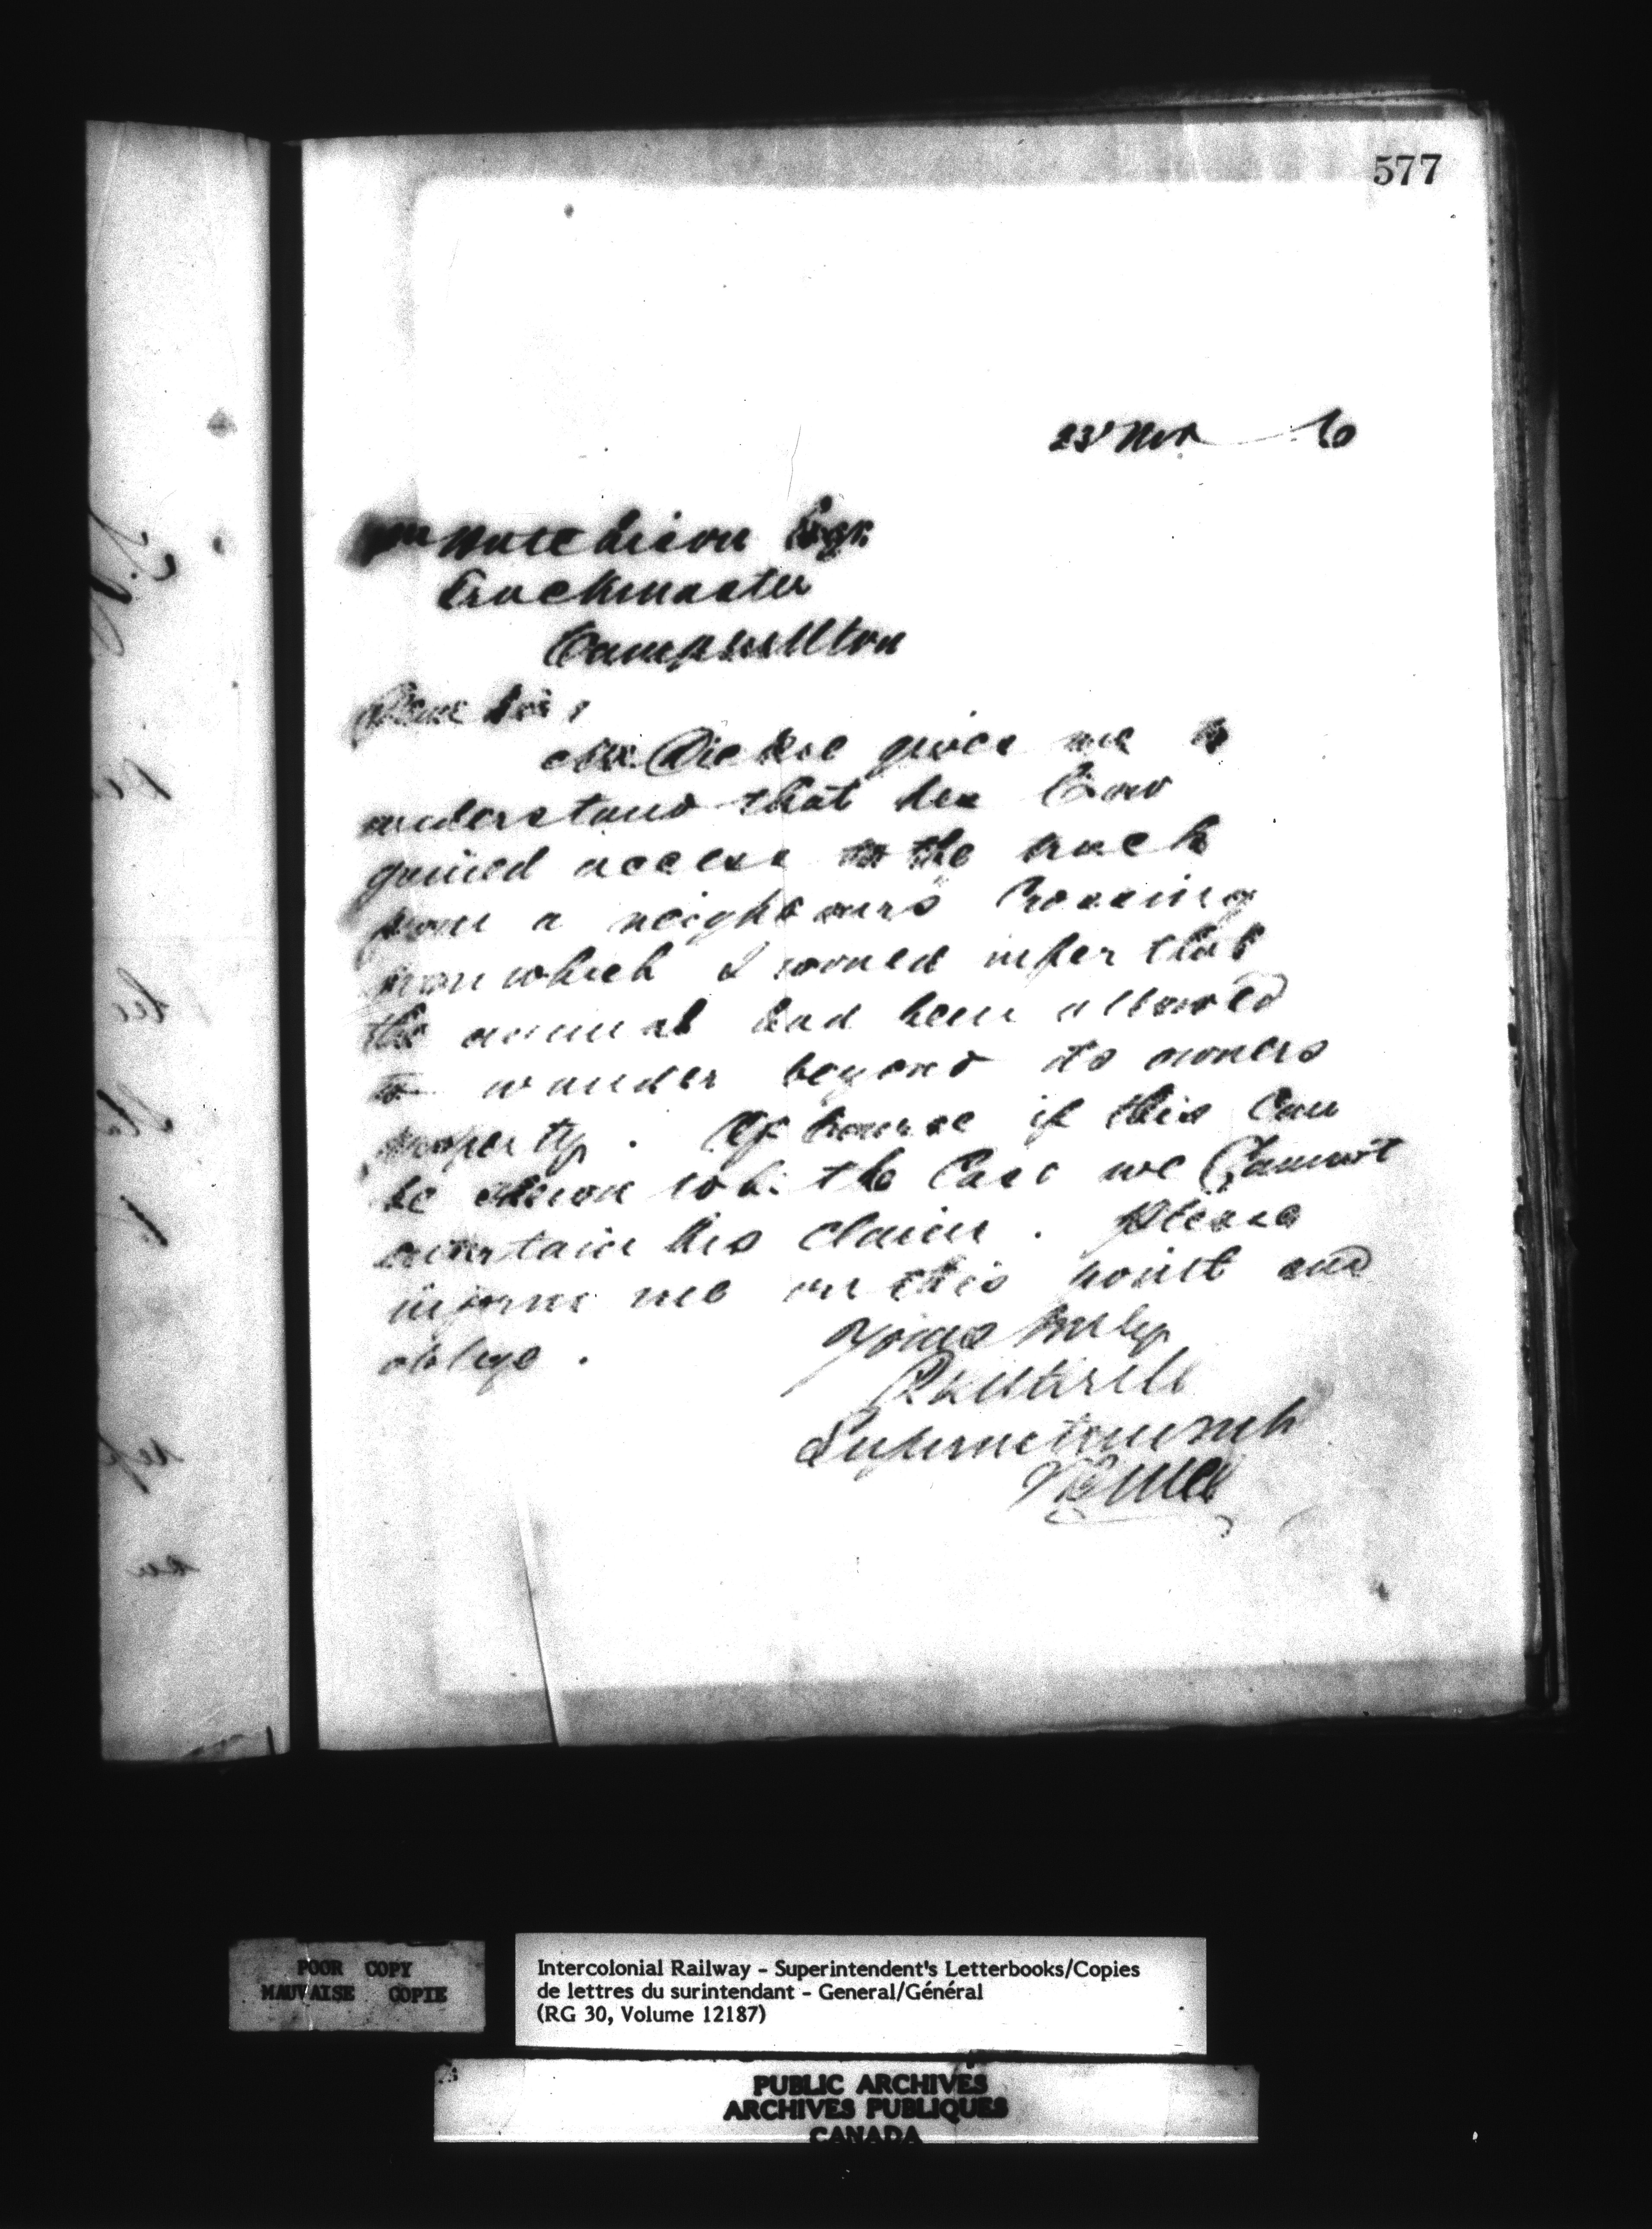 577
23' Nov 6
Hutchison Esqr.
Trackmaster
Campbellton
Dear Sir,
Mr. Dickie gives me to
understand that his Cow
gained access to the track
from a neighbours Crossing
from which I would infer that
the animal had been allowed
to wander beyond its owners
property. Of course if this Can
be shown to be the Case we Cannot
entertain his Claim. Please
inform me on this point and
oblige.
Yours truly
Superintendent
POOR COPY
MAUVAISE COPIE
Intercolonial Railway - Superintendent's Letterbooks/Copies
de lettres du surintendant - General/Général
(RG 30, Volume 12187)
PUBLIC ARCHIVES
ARCHIVES PUBLIQUES
CANADA